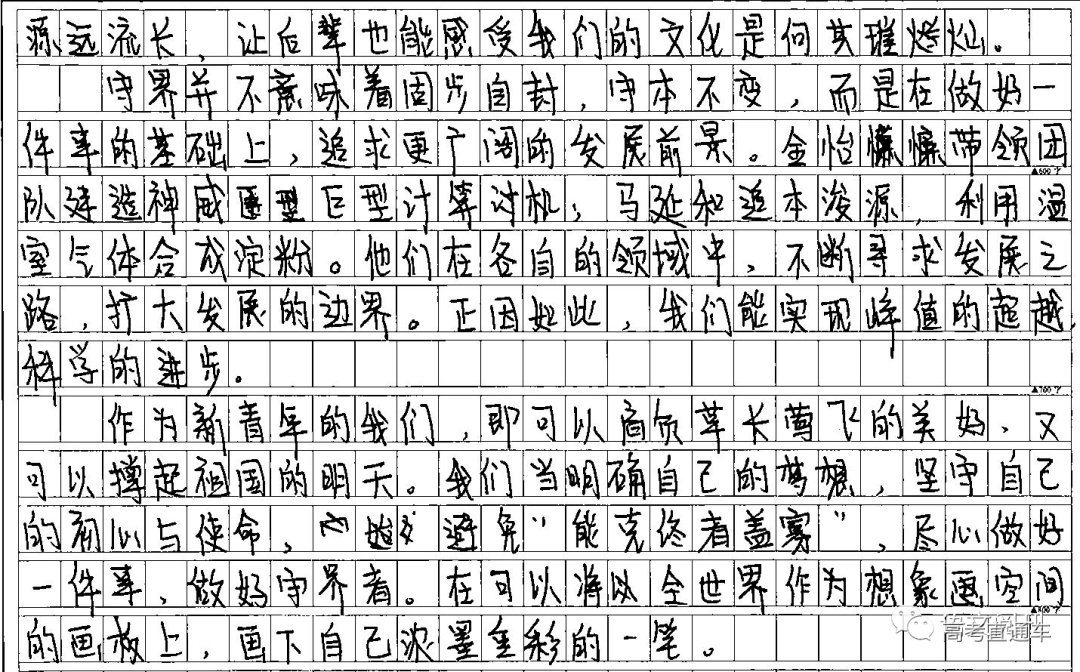 源远流长，让后辈也能感受我们的文化是何其璀璨灿。
守界并不意味着固步自封，守本不变，而是在做好一
件事的基础上，追求更广阔的发展前景。金怡濂濂带领团
▲600字
队建造神威巨型计算讨机；马延和追本浚源，利用温
室气体合成淀粉。他们在各自的领域中，不断寻求发展之
路，扩大发展的边界。正因如此，我们能实现峰值的超越，
科学的进步。
▲700字
作为新青年的我们，即可以肩负草长莺飞的美好，又
可以撑起祖国的明天。我们当明确自己的梦想，坚守自己
的初心与使命，避免“能克终者盖寡”，尽心做好
一件事，做好守界者。在可以将以全世界作为想象画空间
▲800字
的画板上，画下自己浓墨重彩的一笔。
高考直通车